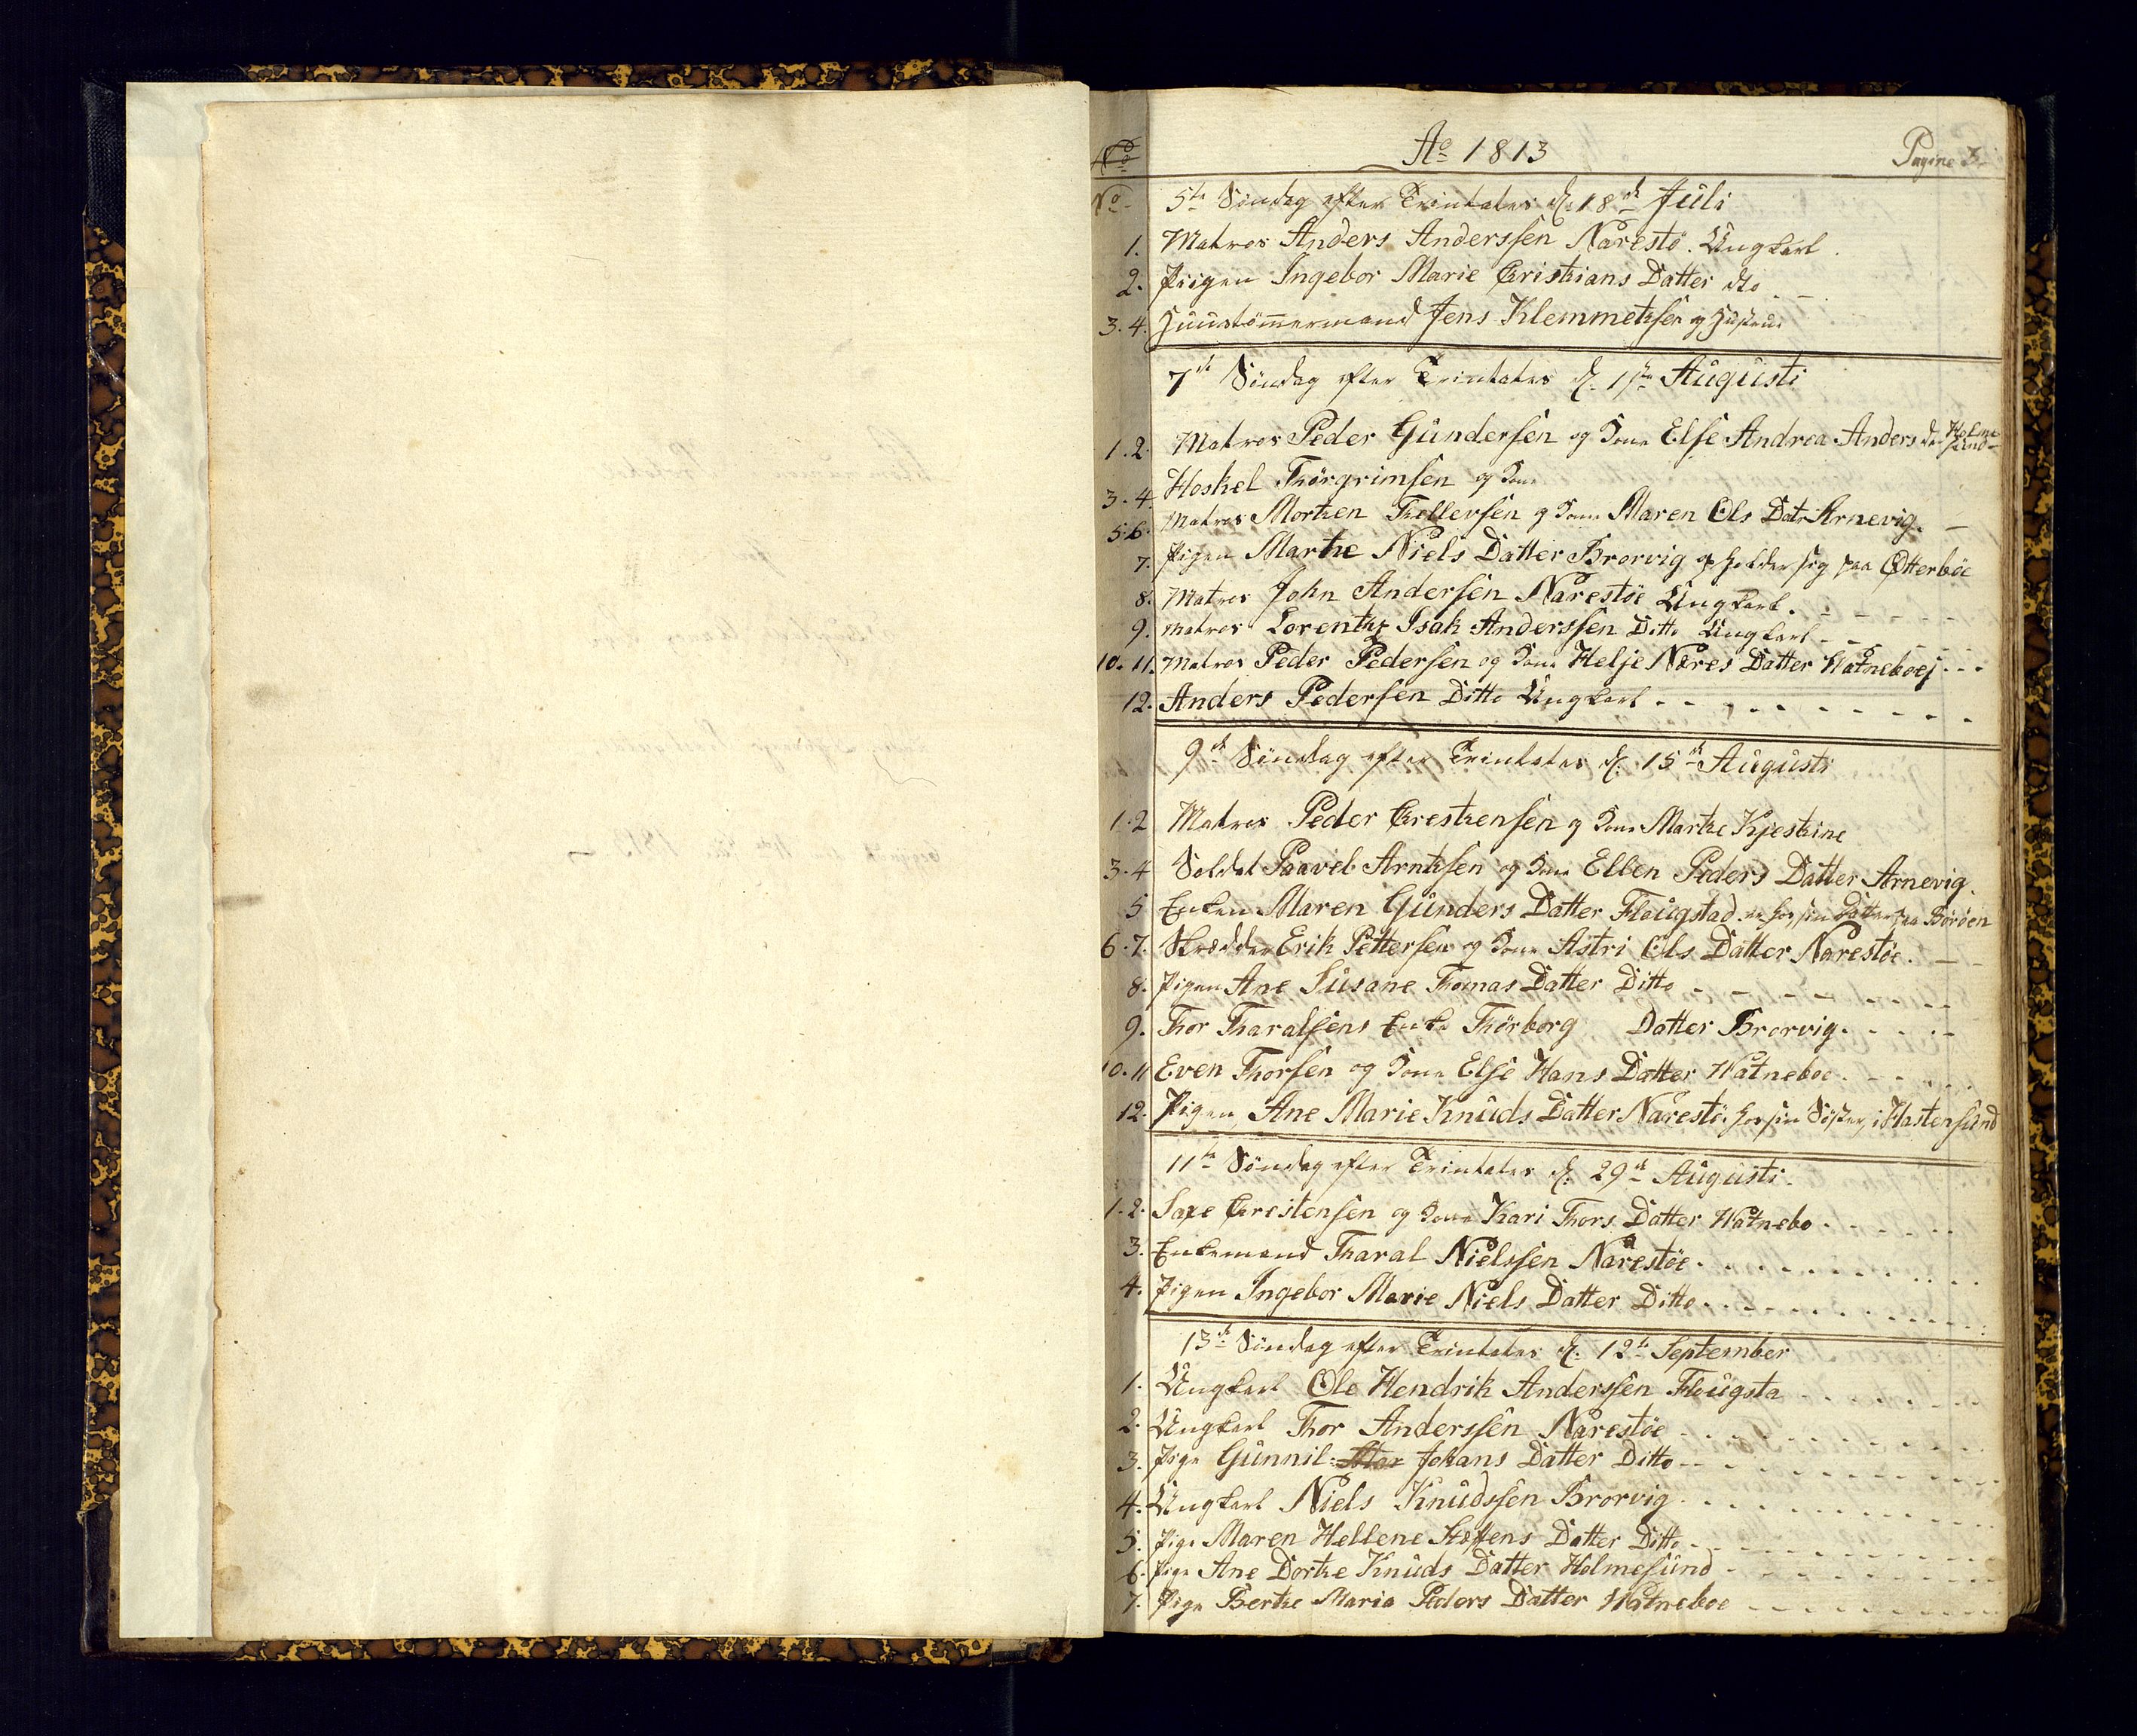 Ao 1813
Pagine 3.
No
No. 5te Søndag efter Trinitates d. 18de Juli
1. Matros Anders Anderssen Narestø. Ungkarl
2. Piigen Ingebor Marie Christians Datter dto
3. 4. Huustømmermand Jens Klemmetsen og Hustrue
7de Søndag efter Trinitates d. 1ste Augusti
1. 2. Matros Peder Gundersen og Kone Else Andrea Anders dr Holmesund
3. 4. Hoskel Thørgrimsen og Kone
5. 6. Matros Morthen Thellevsen og Kone Maren Ols Datr Arnevig.
7. Pigen Marthe Niels Datter Brorvig opholder sig paa Otterbøe
8. Matros John Andersen Narestøe Ungkarl.
9. Matros Lorentz Isak Anderssen Ditto Ungkarl
10. 11. Matros Peder Pedersen og Kone Helje Næres Datter Watneboej
12. Anders Pedersen Ditto Ungkarl
9de Søndag efter Trinitates d. 15de Augusti
1. 2 Matros Peder Chresthensen og Kone Marthe Kjesthine
3. 4 Soldat Paavel Arnthsen og Kone Ellen Peders Datter Arnevig.
5 Enken Maren Gunders Datter Flougstad er hos sin Datter paa Borøen
6. 7. Skrædder Erik Pettersen og Kone Astri Ols Datter Narestøe.
8. Pigen Ane Susane Thomas Datter Ditto
9. Thor Tharalsens Enke Thørborg Datter Brorvig.
10. 11 Even Thorsen og Kone Else Hans Datter Watneboe.
12. Pigen Ane Marie Knuds Datter Narestø. hos sin Søster i Hastensund
11te Søndag efter Trinitates d. 29de Augusti.
1. 2. Saxe Chrestensen og Kone Kari Thors Datter Watnebo
3. Enkemand Tharal Nielssen Narestøe.
4. Pigen Ingebor Marie Niels Datter Ditto.
13de Søndag efter Trinitates d. 12te September
1. Ungkarl Ole Hendrik Anderssen Flougsta
2. Ungkarl Thor Anderssen Narestøe
3. Pige Gunnil Johans Datter Ditto
4. Ungkarl Niels Knudssen Brorvig
5. Pige Maren Hellene Steffens Datter Ditto
6. Pige Ane Dorthe Knuds Datter Holmesund
7. Pige Berthe Maria Peders Datter Watneboe